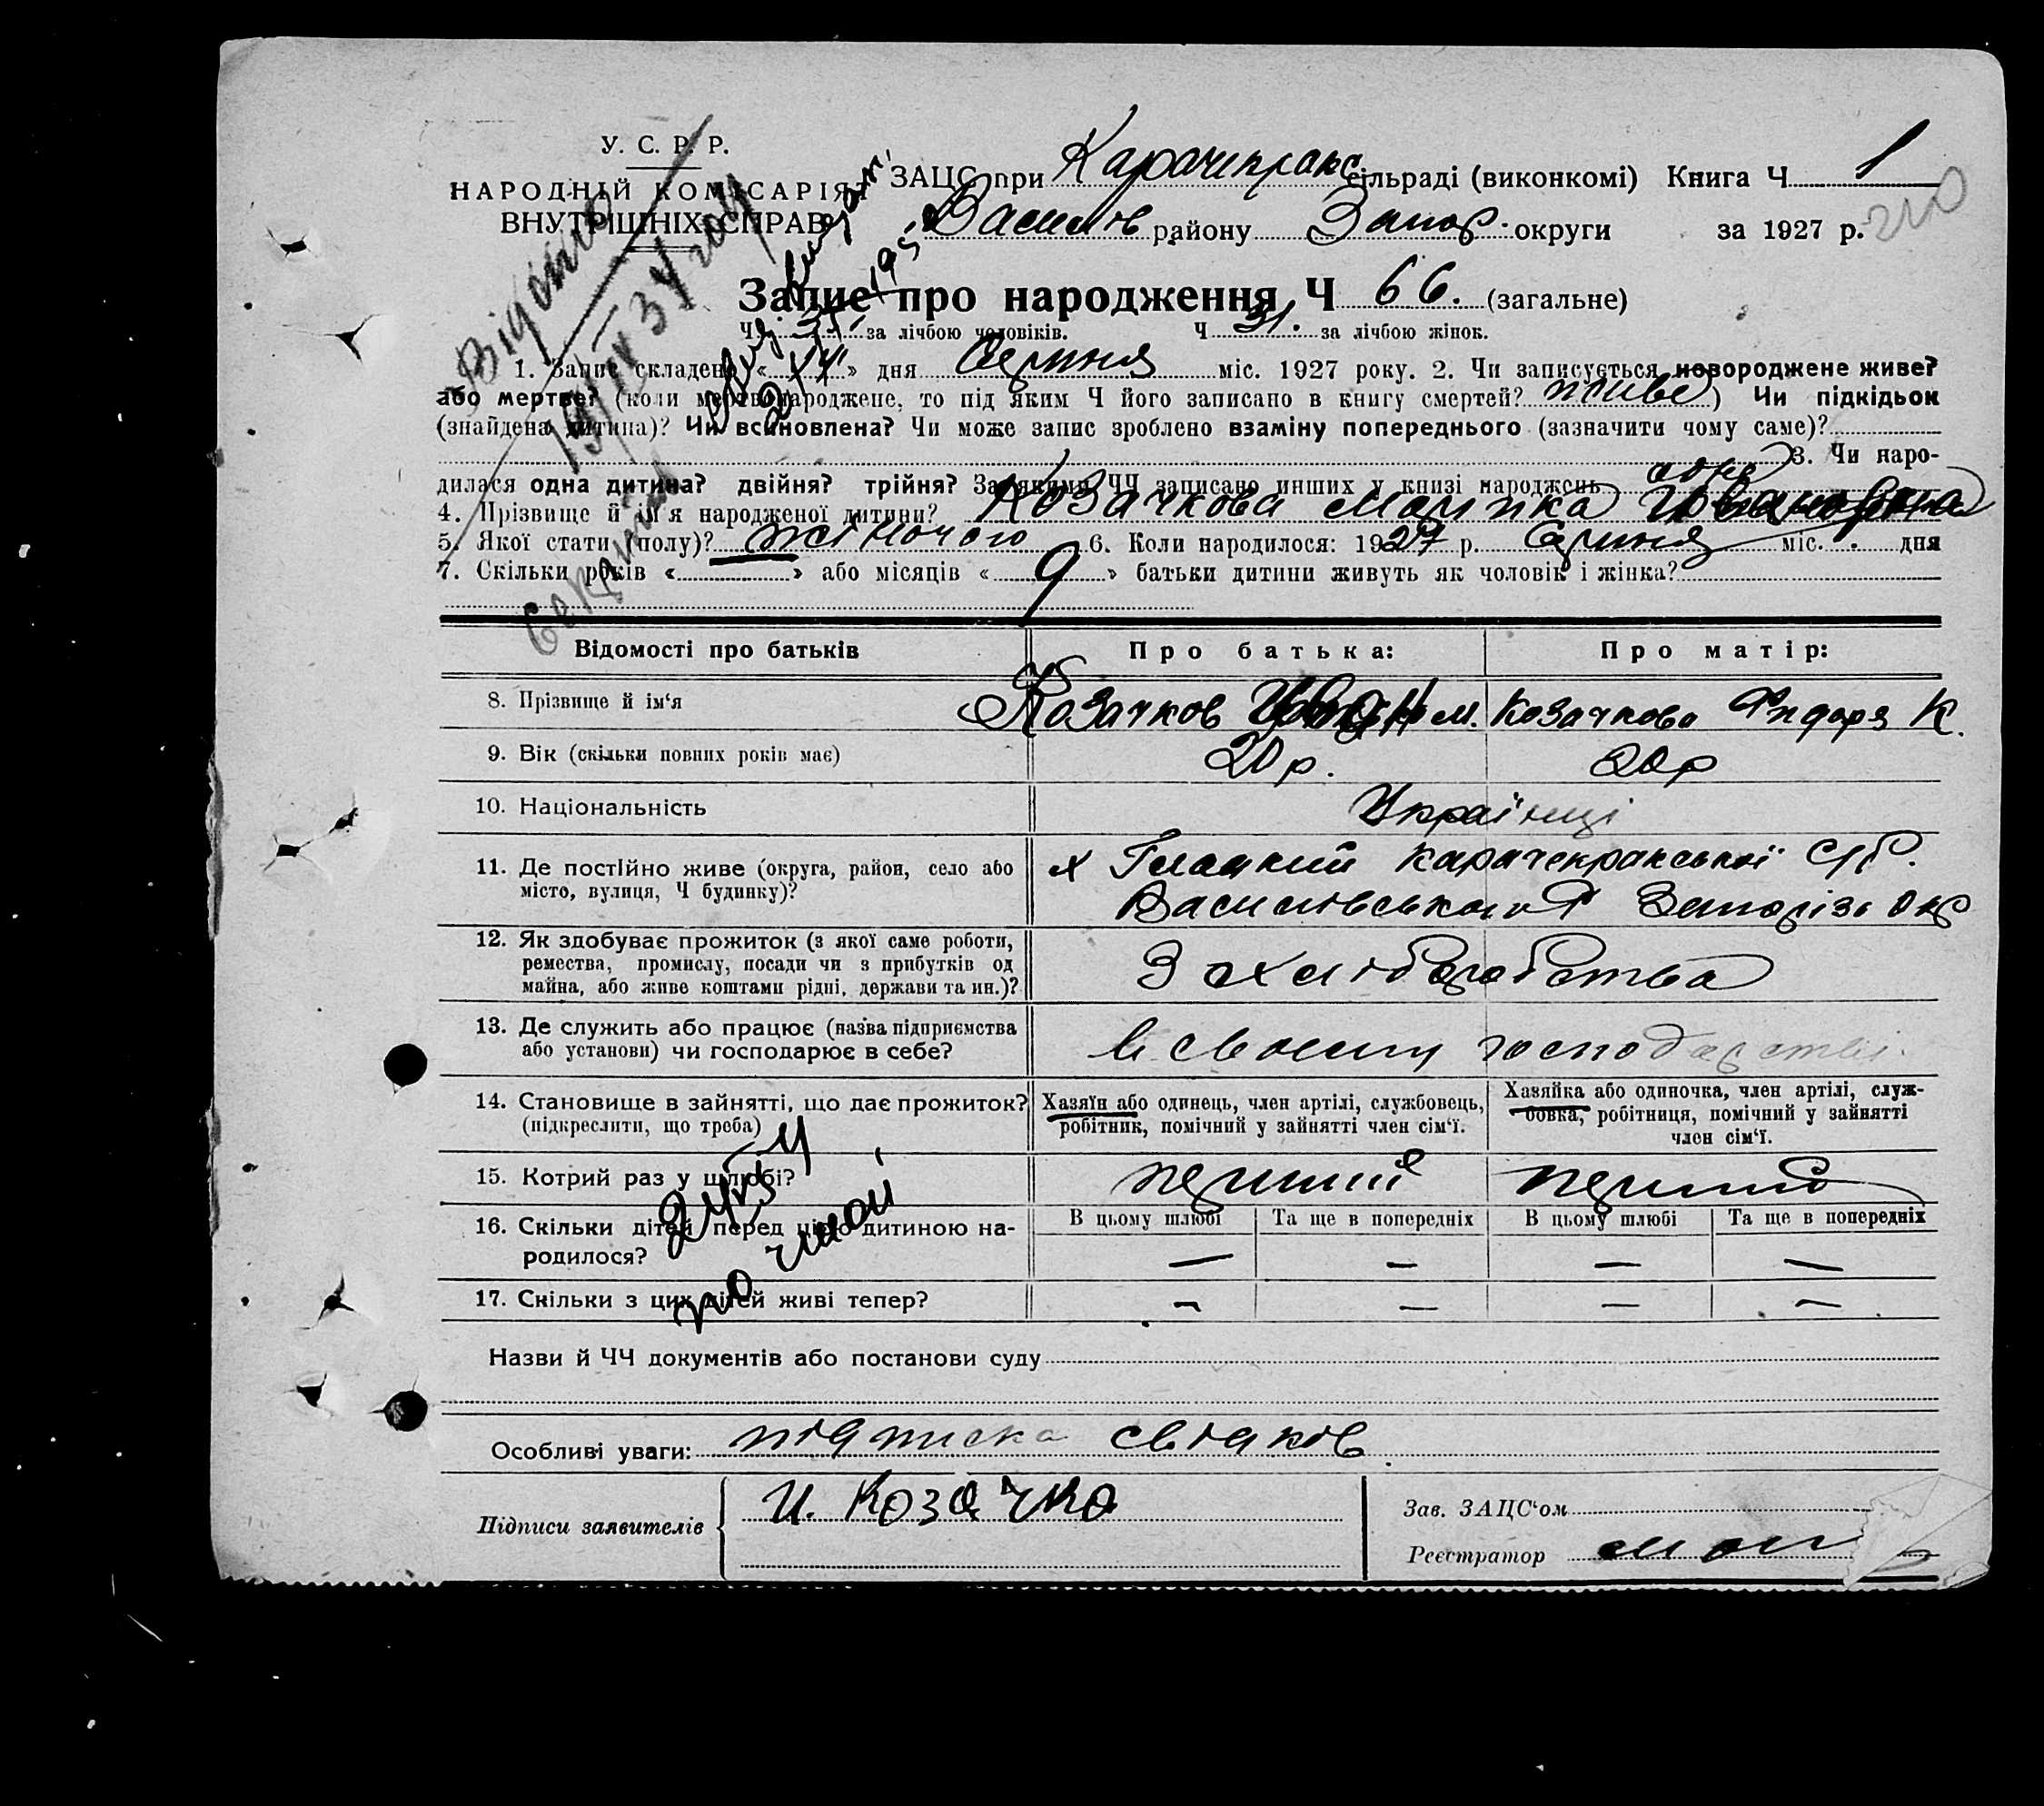 У. С. Р. Р.
НАРОДНІЙ КОМІСАРІЯТ
ВНУТРІШНІХ СПРАВ
ЗАЦС при Карачекракс сільраді (виконкомі) Книга Ч 1
Васил района Запор. округи за 1927 р. 210
Запис про народження Ч 66. (загальне)
Ч 35 за лічбою чоловіків. Ч 31. за лічбою жінок.
1. Запис складено « » дня Серпня міс. 1927 року. 2. Чи записується новороджене живе?
або мертве? (коли мертвонароджене, то під яким Ч його записано в книгу смертей? живе) Чи підкідьок
(знайдена дитина)? Чи всиновлена? Чи може запис зроблено взаміну попереднього (зазначити чому саме)?
3. Чи наро-
дилася одна дитина? двійня? трійня? За якими ЧЧ записано инших у книзі народжень одна
4. Прізвище й ім'я народженої дитини? Козачкова Ивановна
5. Якої стати (полу)? жіночого 6. Коли народилося: 1927 р. Серпня міс. дня
7. Скільки років « » або місяців « 9 » батьки дитини живуть як чоловік і жінка?
Видано
19/IV 34 году
Відомості про батьків
Про батька:
Про матір:
8. Прізвище й ім'я
Козачков Иван М. Козачкова Федора К.
9. Вік (скільки повних років має)
20 р. 20 р
10. Національність
Українці
11. Де постійно живе (округа, район, село або
місто, вулиця, Ч будинку)?
х Карачекракської С/р.
Василівського Р Запоріз Окр
12. Як здобуває прожиток (з якої саме роботи,
ремества, промислу, посади чи з прибутків од
майна, або живе коштами рідні, держави та ин.)?
З хліборобства
13. Де служить або працює (назва підприємства
або установи) чи господарює в себе?
в своєму господарстві.
14. Становище в зайнятті, що дає прожиток?
(підкреслити, що треба)
Хазяїн або одинець, член артілі, службовець,
робітник, помічний у зайнятті член сім'ї.
Хазяйка або одиночка, член артілі, служ-
бовка, робітниця, помічний у зайнятті
член сім'ї.
15. Котрий раз у шлюбі?
перший перший
16. Скільки дітей перед цією дитиною на-
родилося?
В цьому шлюбі Та ще в попередніх В цьому шлюбі Та ще в попередніх
— — — —
17. Скільки з цих дітей живі тепер?
— — — —
Назви й ЧЧ документів або постанови суду
Особливі уваги: підписка свідків
Підписи заявителів
И. Козачко
Зав. ЗАЦС'ом
Реєстратор